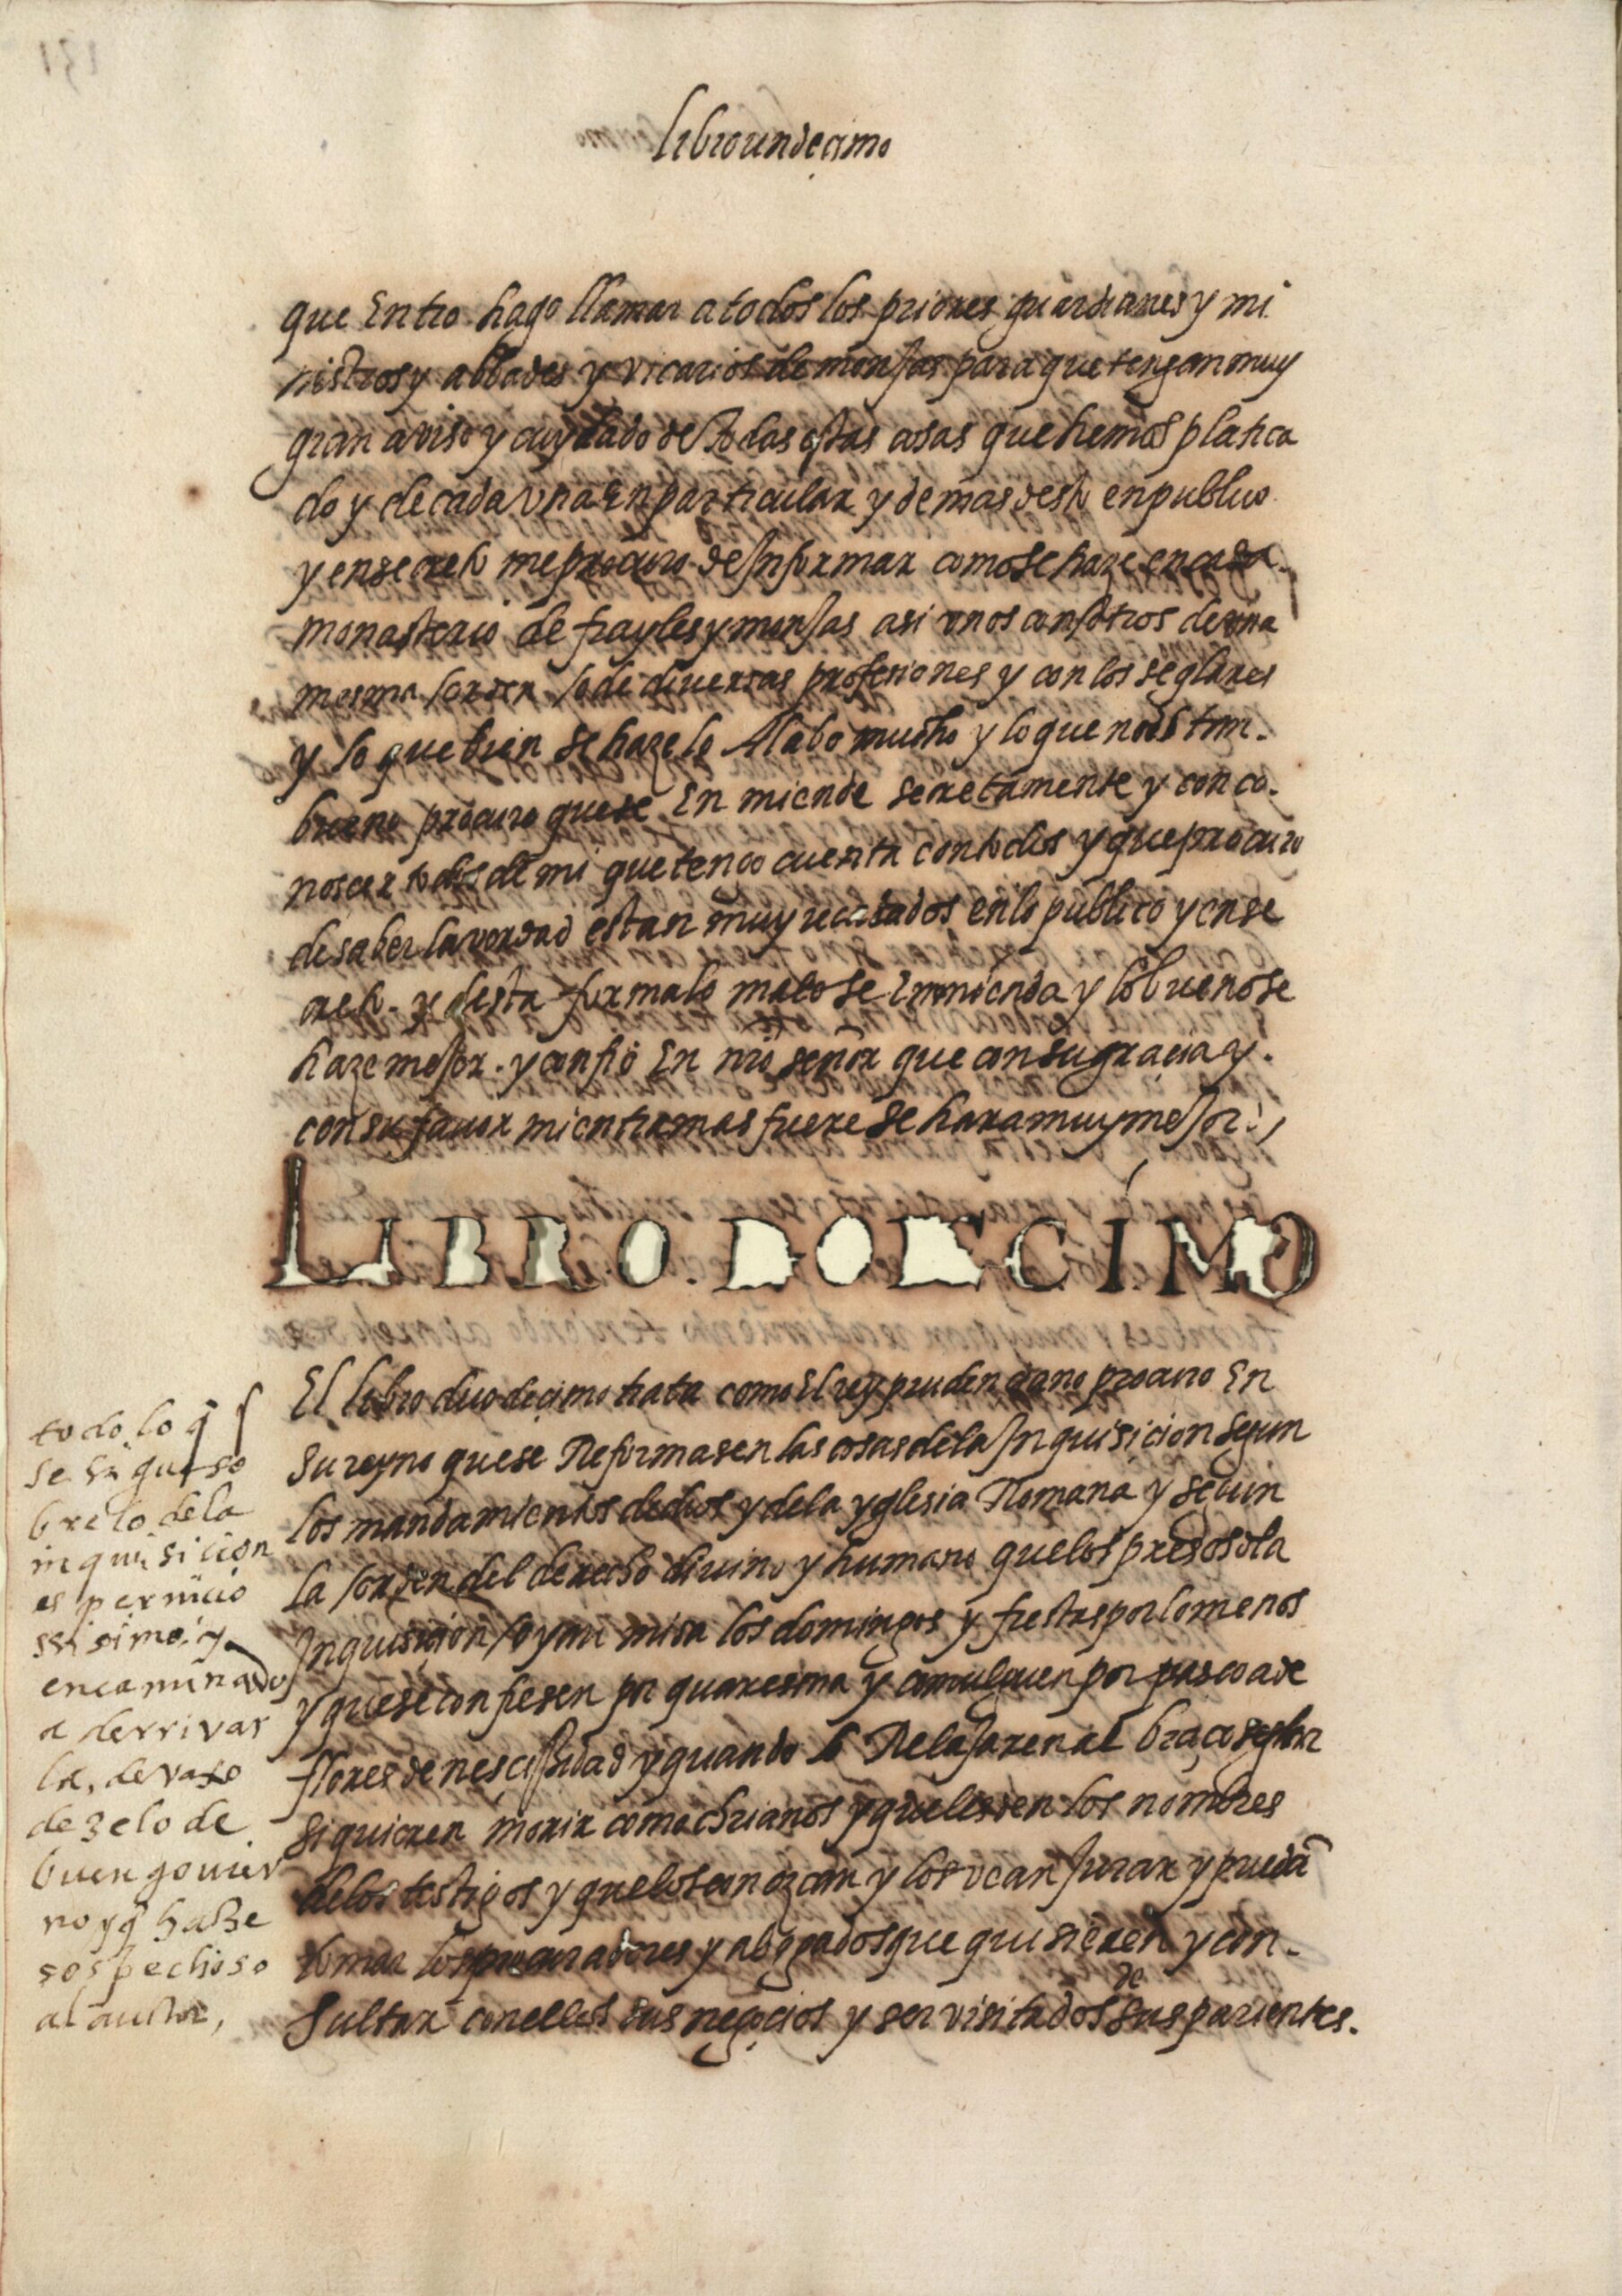 libro undecimo
que Entro hago llamar a todos los priores guardianes y mi
nistros y abbades y vicarios de monjas para que tengan muy
gran aviso y cuydado de todas estas cosas que hemos platica
do y de cada vna En particular y demas desto en publico
y en secreto me procuro de Informar como se haze en cada
monasterio de frayles y monjas asi vnos con otros de vna
mesma orden o de diversas profesiones y con los seglares
y lo que bien se haze lo Alabo mucho y lo que no es tan
bueno procuro que se En miende secretamente y con co
noscer todos de mi que tengo cuenta con todos y que procuro
de saber la verdad estan muy recatados en lo publico y en se
creto. y desta forma lo malo se Enmienda y lo bueno se
haze mejor. y confio En nro señor que con su gracia y.
con su favor mientra mas fuere se hara muy mejor.
LIBRO. DOEECIMO
El libro duodecimo trata como El rey prudenciano procuro En
su reyno que se Reformasen las cosas de la Inquisicion segun
los mandamientos de dios y de la yglesia Romana y segun
la orden del derecho divino y humano que los presos o la
Inquisicion oygan misa los domingos y fiestas por lo menos
y que se confiesen por quaresma y comulguen por pascoa de
flores de nescesidad y quando los Relajaren al braço seglar
si quieren morir como chrianos y que les den los nombres
de los testigos y que los conozcan y los vean Jurar y puedã
tomar los procuradores y abogados que quisieren y con-
sultar con ellos sus negocios y ser visitados de sus parientes.
todo lo q̃
se sigue so
bre lo de la
inquisicion
es pernicio
ssisimo, y
encaminado
a derrivar
la, devaxo
de zelo de
buen gouier
no y q̃ haze
sospechoso
al auctor,